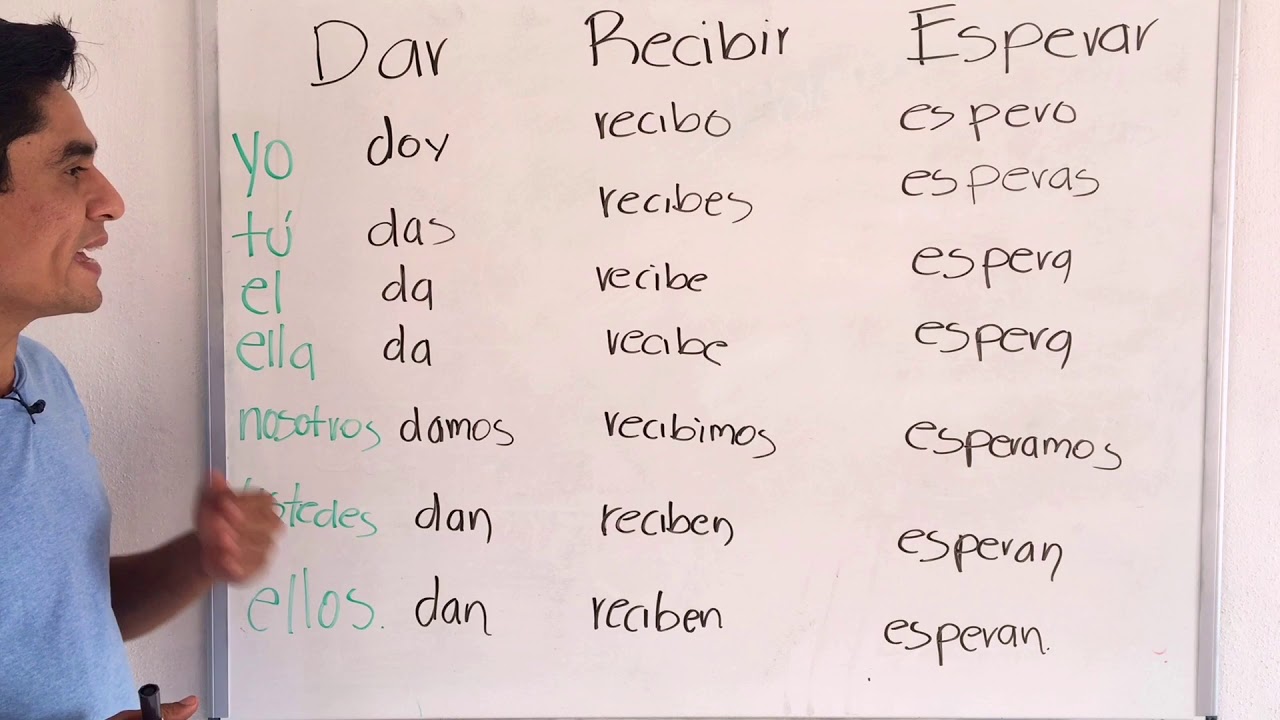 Dar Recibir Esperar
yo doy recibo espero
tú das recibes esperas
el da recibe espera
ella da recibe espera
nosotros damos recibimos esperamos
ustedes dan reciben esperan
ellos. dan reciben esperan.